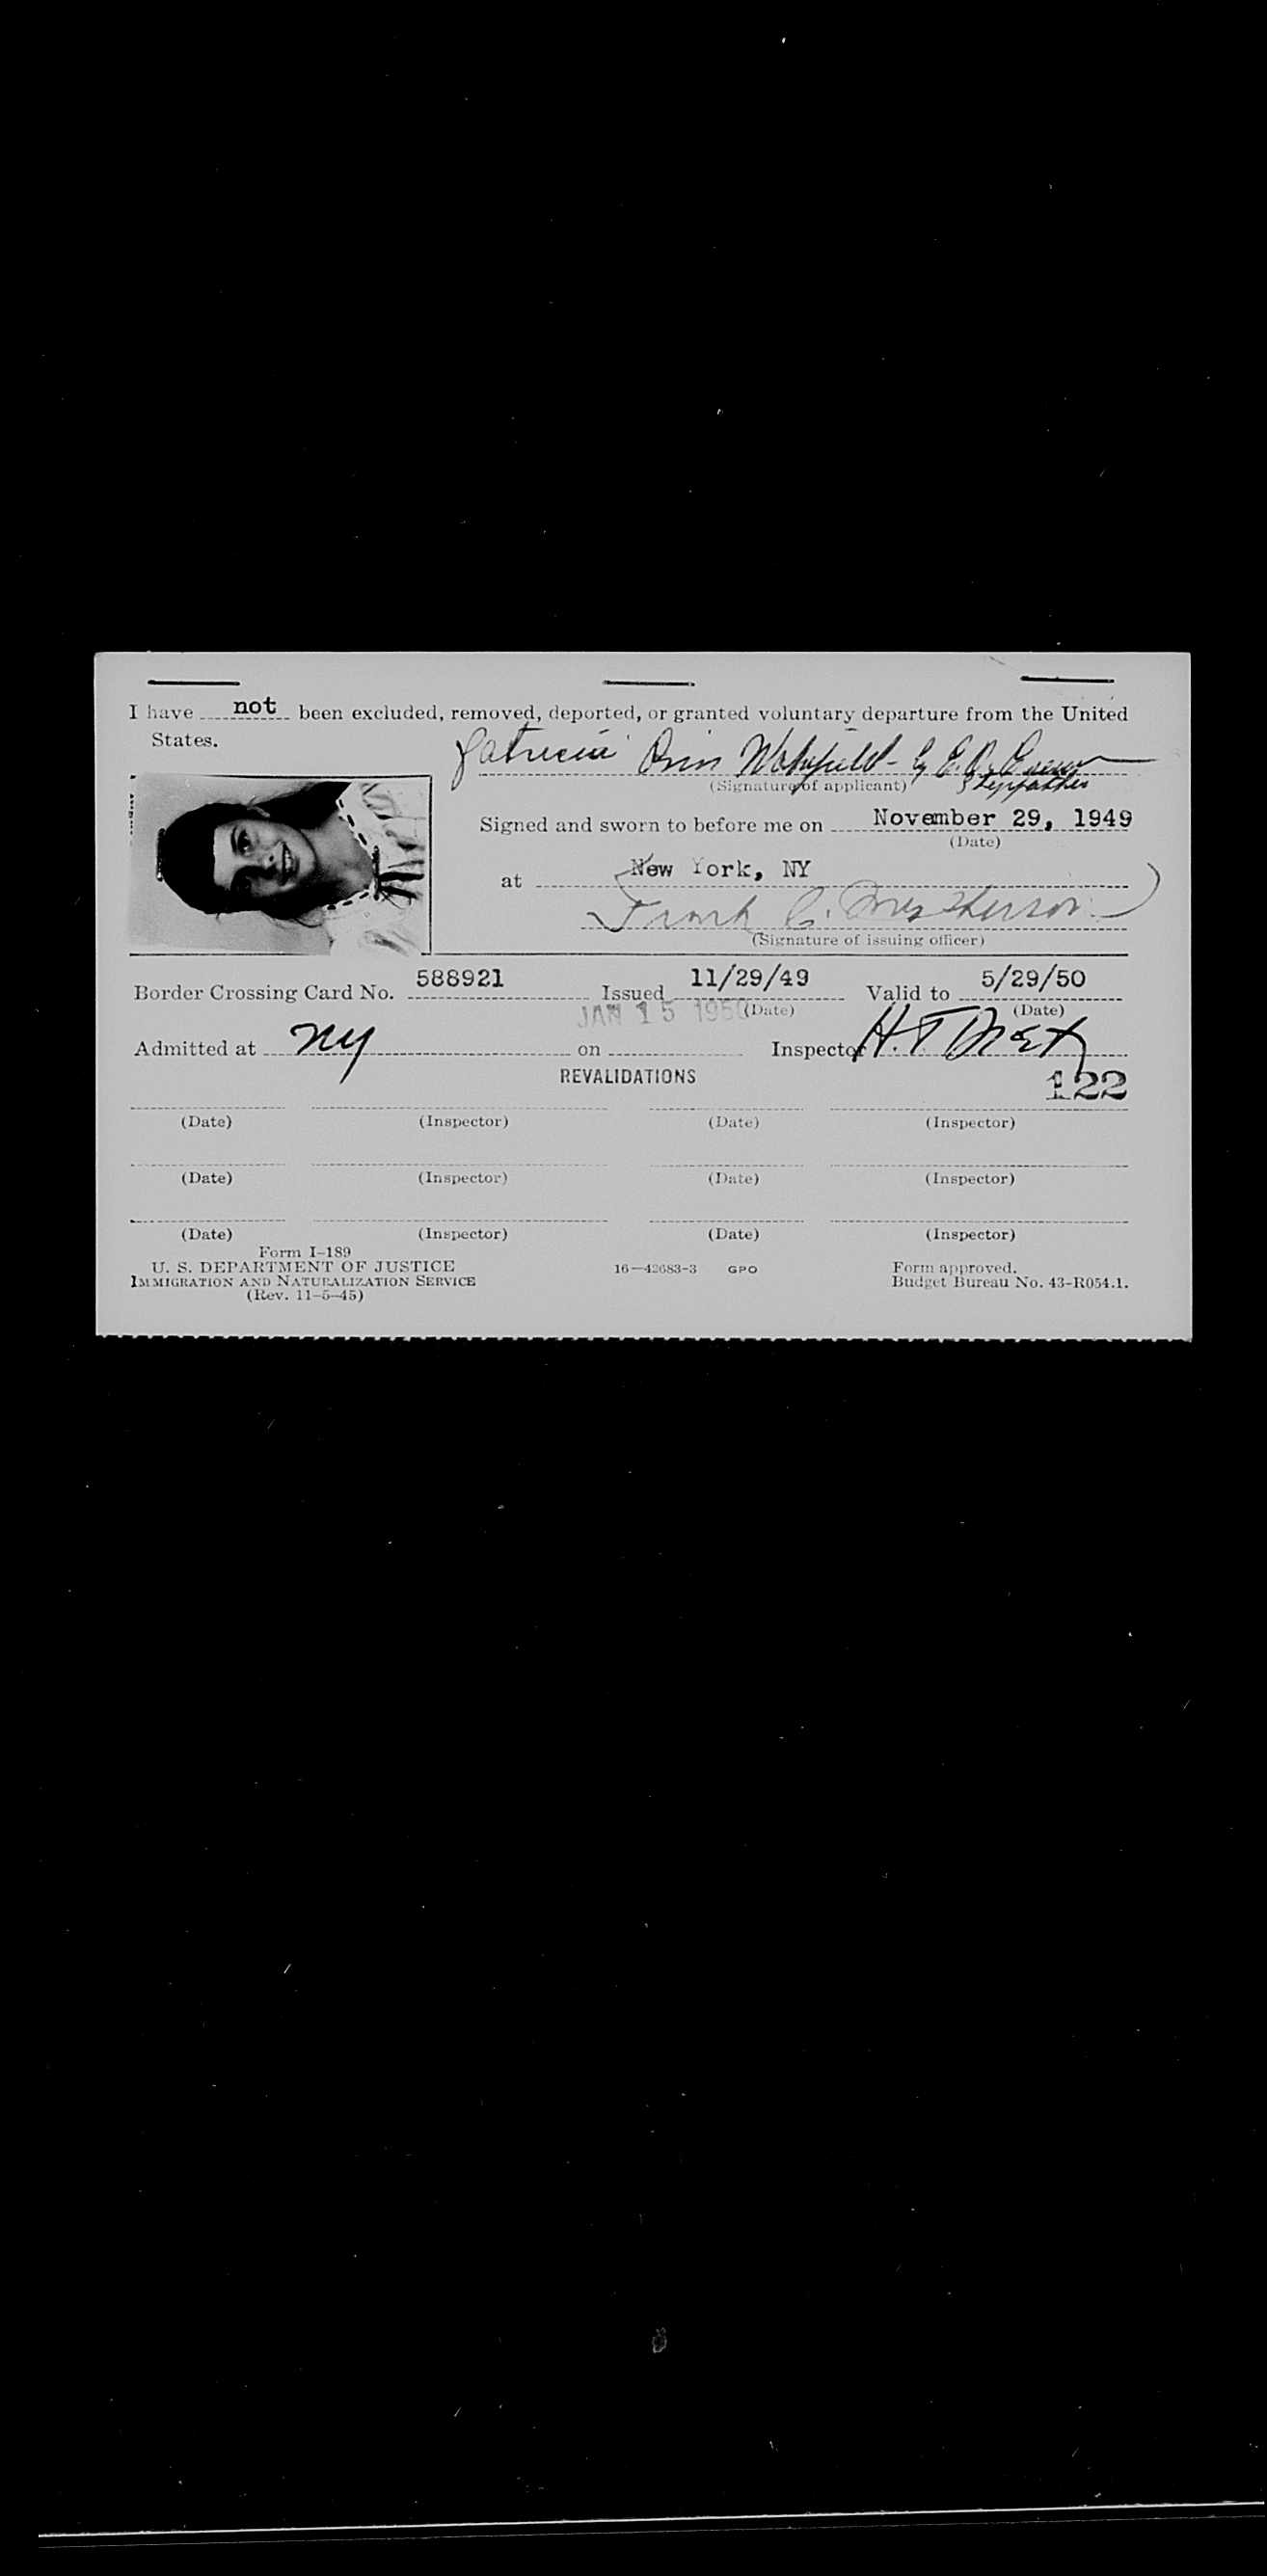 I have not been excluded, removed, deported, or granted voluntary departure from the United
States.
Patricia Ann Wakefield - by E. A.
(Signature of applicant) Stepfather
Signed and sworn to before me on November 29, 1949
(Date)
at New York, NY
Frank C.
(Signature of issuing officer)
Border Crossing Card No. 588921 Issued 11/29/49 Valid to 5/29/50
JAN 15 1950 (Date) (Date)
Admitted at NY on Inspector H. T.
REVALIDATIONS 122
(Date) (Inspector) (Date) (Inspector)
(Date) (Inspector) (Date) (Inspector)
(Date) (Inspector) (Date) (Inspector)
Form I-189
U. S. DEPARTMENT OF JUSTICE 16—42683-3 GPO Form approved.
IMMIGRATION AND NATURALIZATION SERVICE Budget Bureau No. 43-R054.1.
(Rev. 11-5-45)